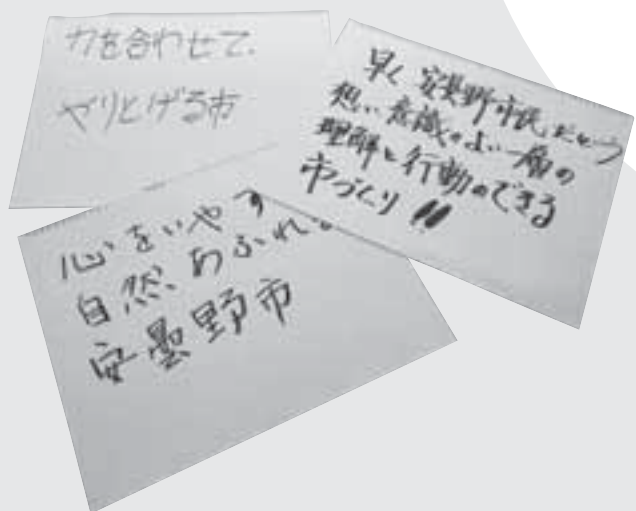 力を合わせて、
やりとげる市
早く安曇野市民だという
想い、意識のよい一層の
理解と行動のできる
市づくり!!
心をいやす
自然、あふれる
安曇野市